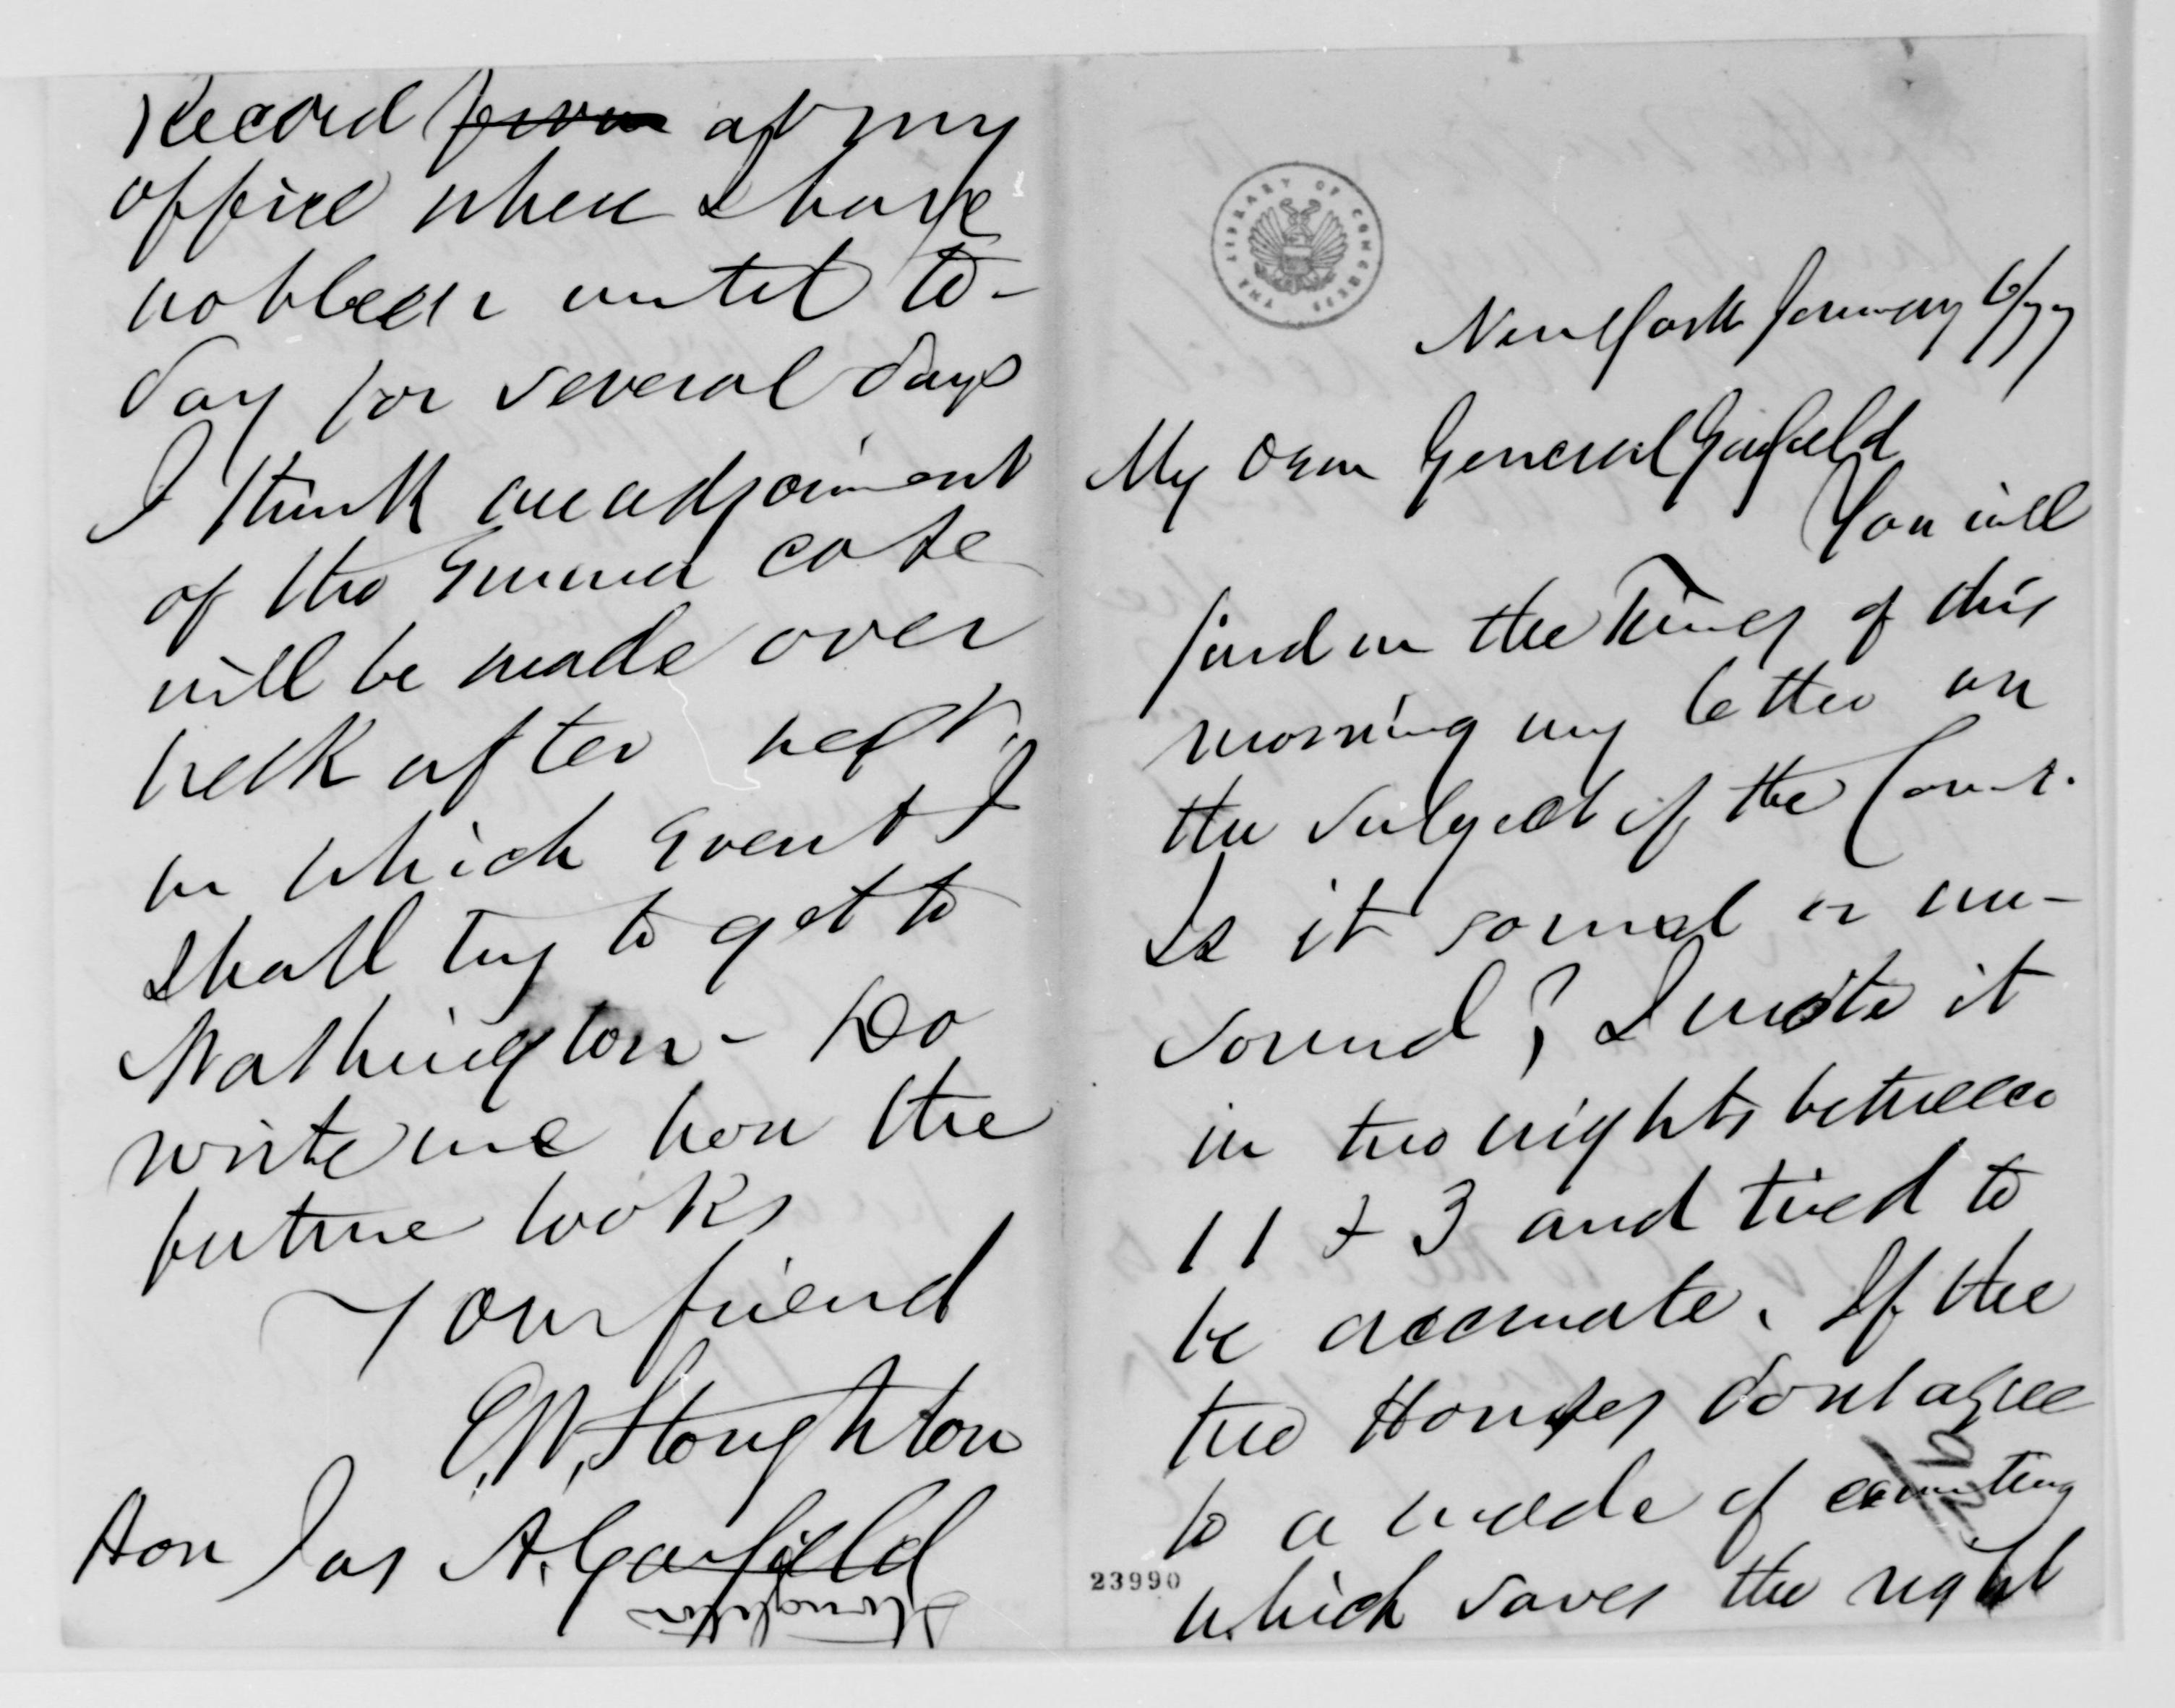 New York January 6/77
My dear General Garfield
You will
find in the Times of this
morning my letter on
the subject of the Count.
Is it sound or un-
sound? I wrote it
in two nights between
11 & 3 and tired to
be accurate. If the
two Houses dont agree
to a mode of counting
which saves the right
23990
THE LIBRARY OF CONGRESS
Record at my
office where I have
not been until to-
day for several days
I think an adjournment
of the Emma case
will be made over
week after next,
in which event I
shall try to get to
Washington - Do
write me how the
future looks
Your friend
E.W. Stoughton
Hon Jas A. Garfield
Stoughton